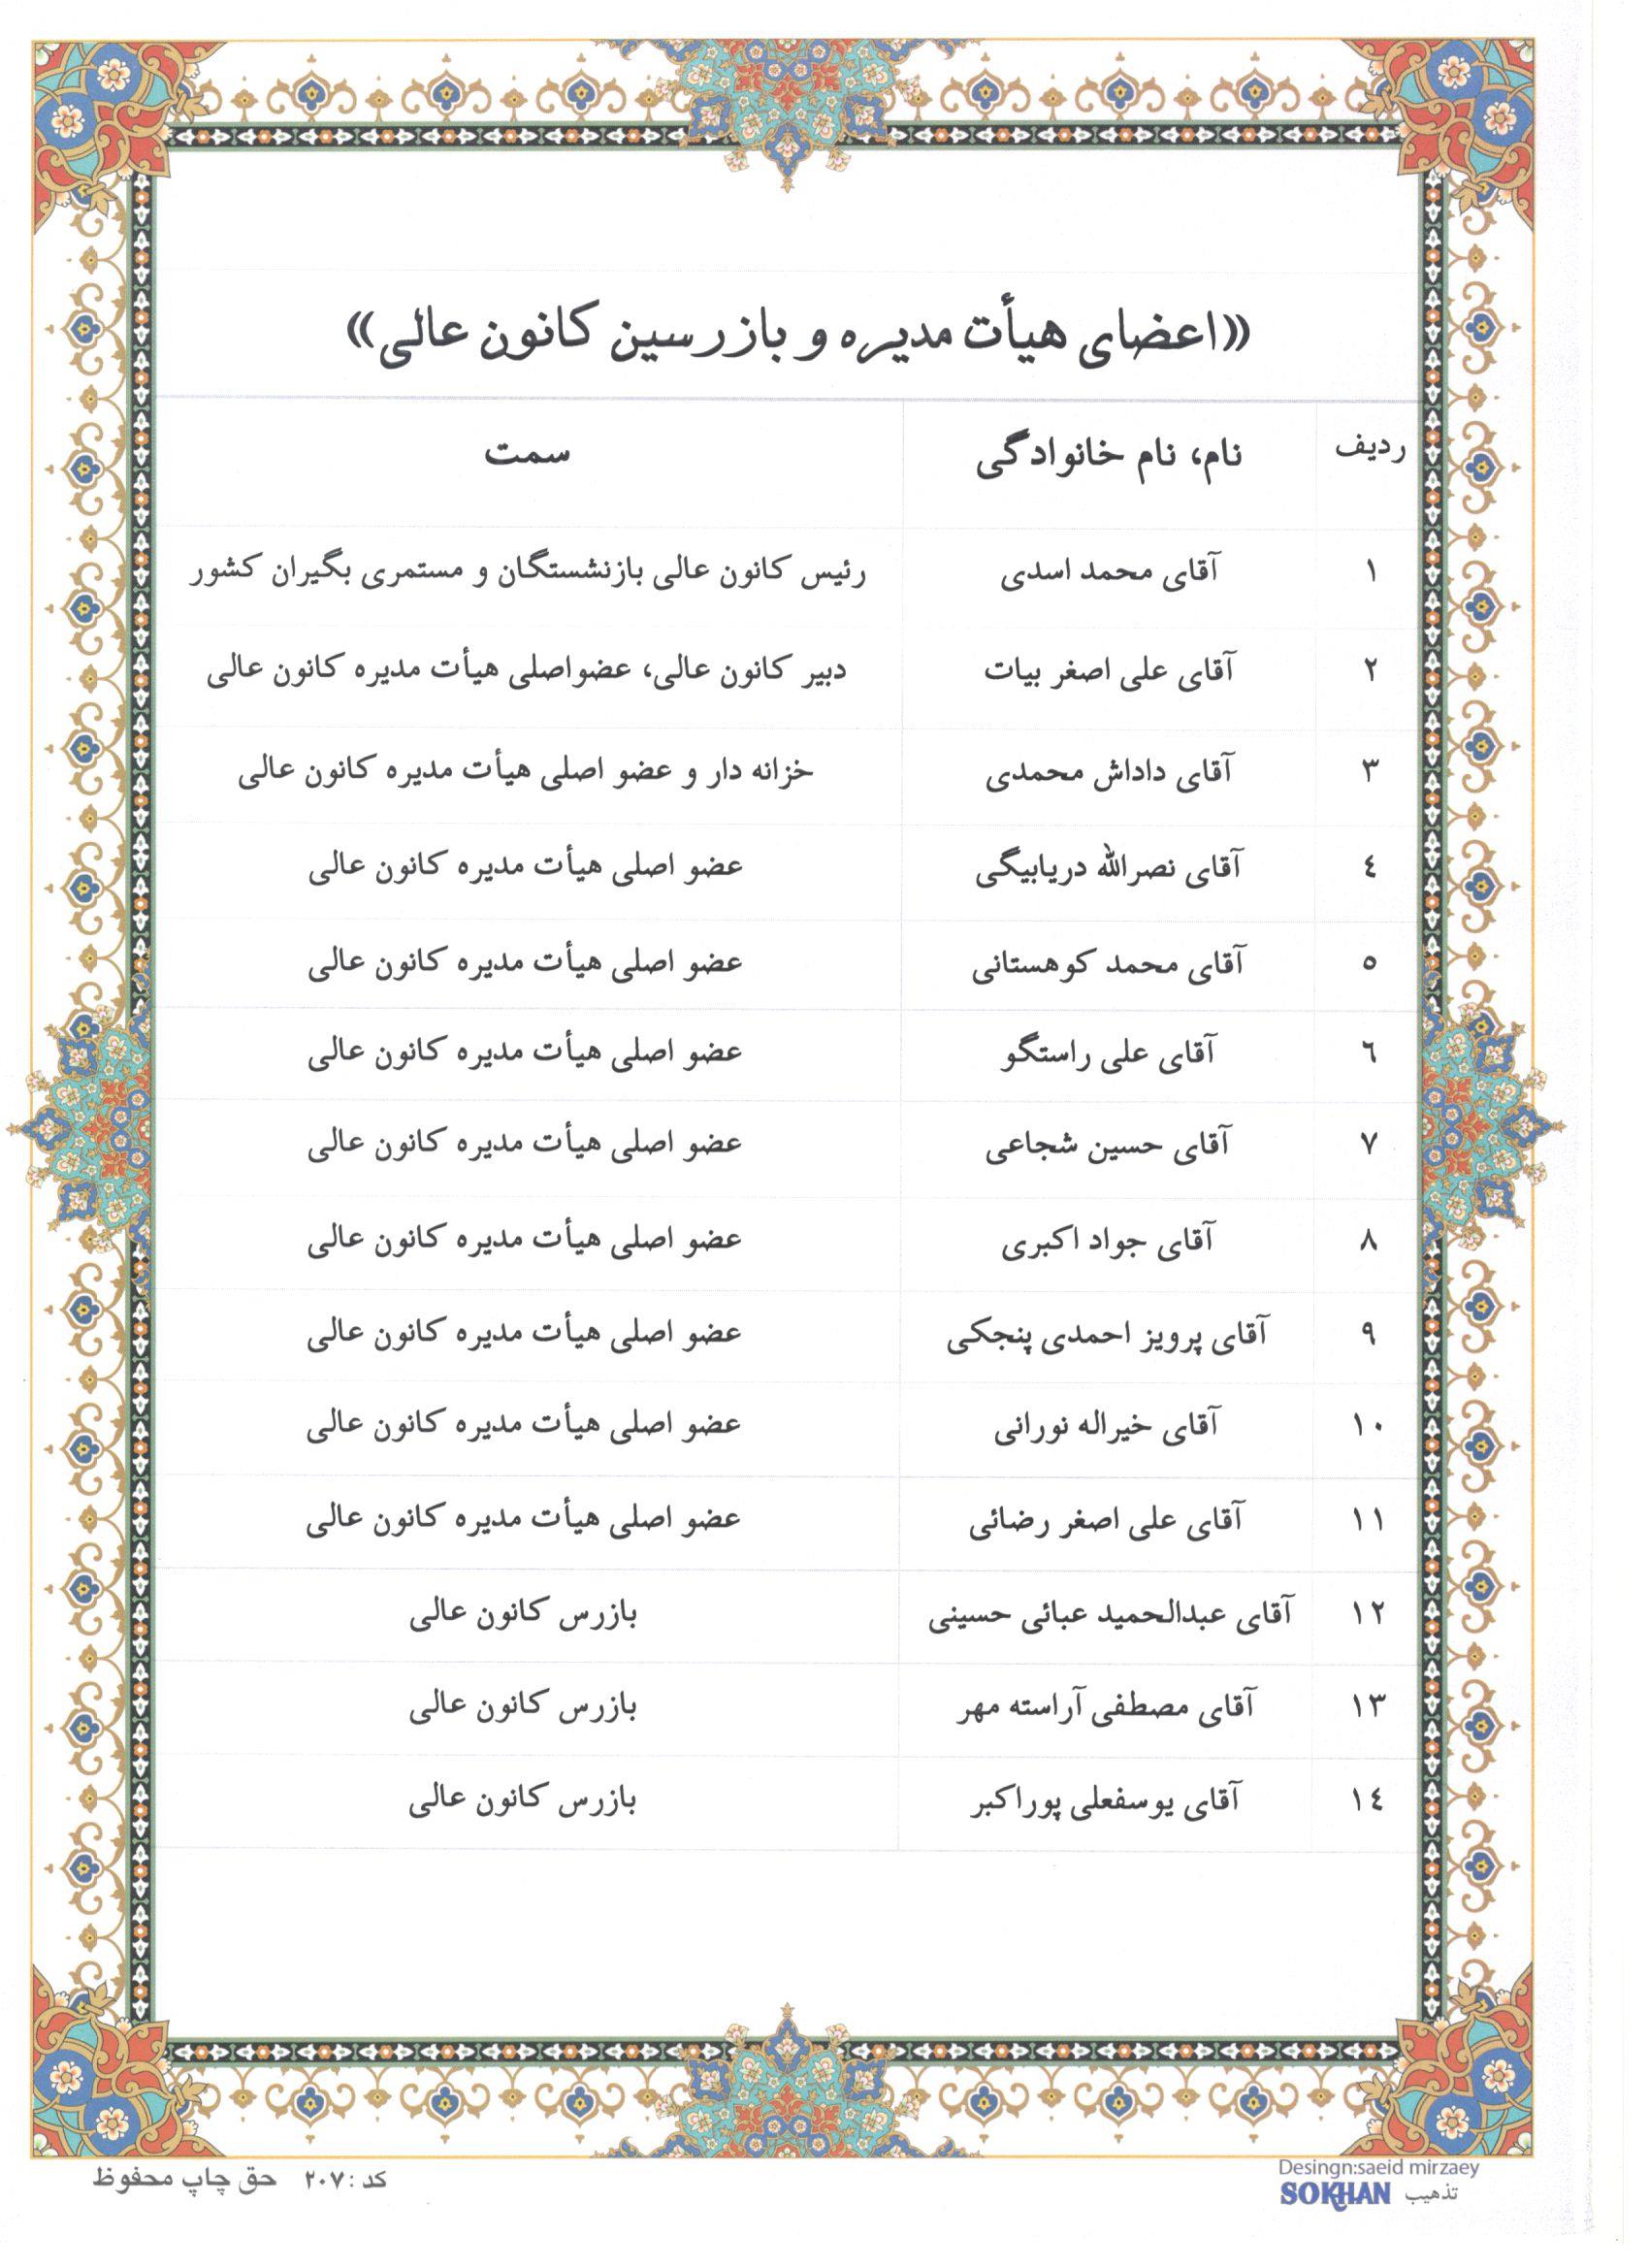 «اعضای هیأت مدیره و بازرسین کانون عالی»
ردیف نام، نام خانوادگی سمت
۱ آقای محمد اسدی رئیس کانون عالی بازنشستگان و مستمری بگیران کشور
۲ آقای علی اصغر بیات دبیر کانون عالی، عضواصلی هیأت مدیره کانون عالی
۳ آقای داداش محمدی خزانه دار و عضو اصلی هیأت مدیره کانون عالی
٤ آقای نصرالله دریابیگی عضو اصلی هیأت مدیره کانون عالی
٥ آقای محمد کوهستانی عضو اصلی هیأت مدیره کانون عالی
٦ آقای علی راستگو عضو اصلی هیأت مدیره کانون عالی
۷ آقای حسین شجاعی عضو اصلی هیأت مدیره کانون عالی
۸ آقای جواد اکبری عضو اصلی هیأت مدیره کانون عالی
۹ آقای پرویز احمدی پنجکی عضو اصلی هیأت مدیره کانون عالی
۱۰ آقای خیراله نورانی عضو اصلی هیأت مدیره کانون عالی
۱۱ آقای علی اصغر رضائی عضو اصلی هیأت مدیره کانون عالی
۱۲ آقای عبدالحمید عبائی حسینی بازرس کانون عالی
۱۳ آقای مصطفی آراسته مهر بازرس کانون عالی
۱٤ آقای یوسفعلی پوراکبر بازرس کانون عالی
Desingn:saeid mirzaey
تذهیب SOKHAN
کد :۲۰۷ حق چاپ محفوظ